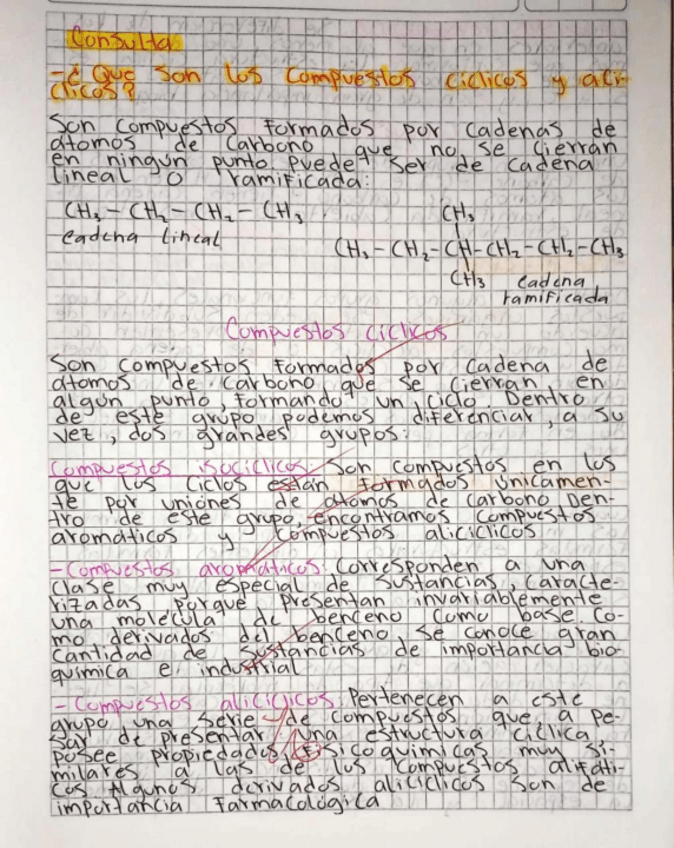 Consulta
-¿ Que son los compuestos ciclicos y ali-
clicos?
Son compuestos formados por cadenas de
atomos de carbono, que no se cierran
en ningun punto puedet ser de cadena
lineal o ramificada:
CH₃ - CH₂ - CH₂ - CH₃
cadena lineal
CH₃
CH₃ - CH₂ - CH - CH₂ - CH₂ - CH₃
CH₃ cadena
ramificada
Compuestos ciclicos
Son compuestos formados por cadena de
atomos de carbono que se cierran, en
algun punto, formando un ciclo. Dentro
de este grupo podemos diferenciar, a su
vez, dos grandes grupos:
Compuestos isociclicos Son compuestos en los
que los ciclos están formados unicamen-
te por uniones de atomos de carbono Den-
tro de este grupo, encontramos compuestos
aromáticos y compuestos aliciclicos
- Compuestos aromáticos: Corresponden a una
clase muy especial de sustancias, caracte-
rizadas porque presentan invariablemente
una molécula de benceno como base. Co-
mo derivados del benceno, se conoce gran
cantidad de sustancias de importancia bio-
química e industrial
- Compuestos aliciclicos: Pertenecen a este
grupo una serie de compuestos que, a pe-
sar de presentar una estructura ciclica,
posee propiedades fisicoquimicas muy si-
milares a las de los compuestos alifáti-
cos Algunos derivados aliciclicos son de
importancia farmacológica